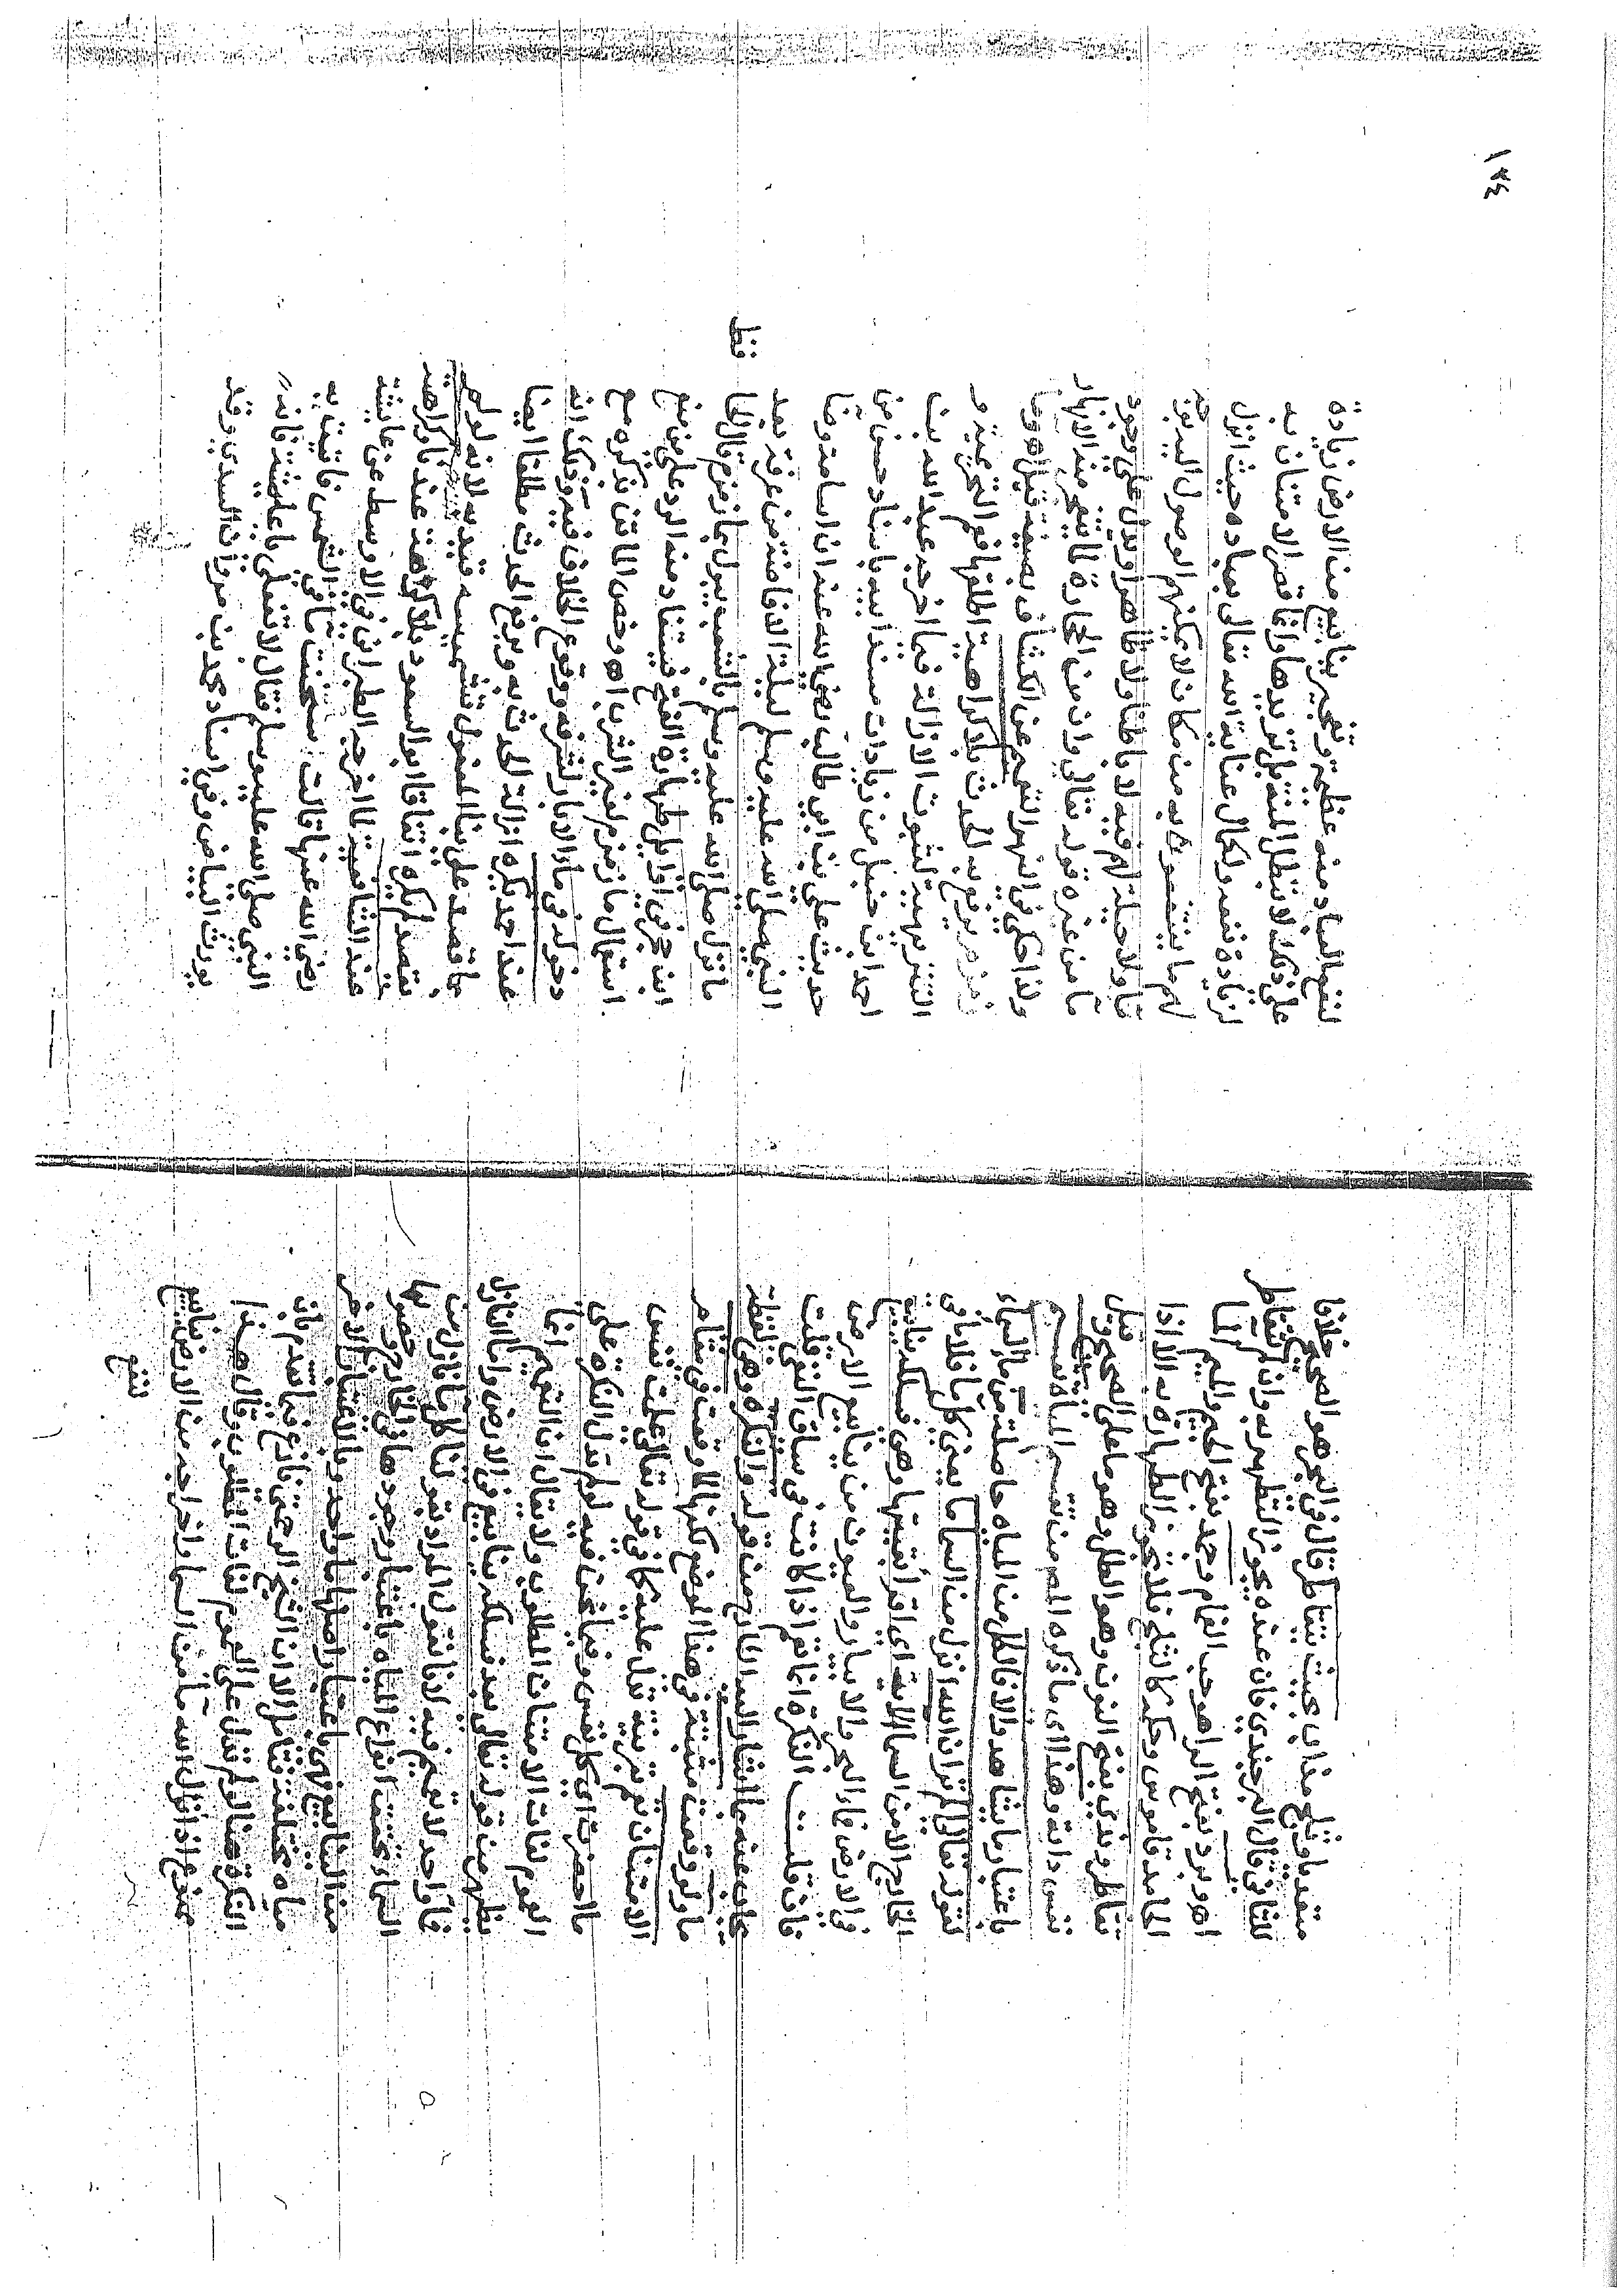 متعددة وثلج مذاب بحيث يتقاطر قال في البحر هو الصحيح خلافا
للثاني قال البرجندي فان عنده يجوز التطهر به وان لم يتقاطر
اهـ وبرد بفتح الراء هو حب الغمام وجمد بفتح الجيم والميم الما
الجامد قاموس وحكمه كالثلج فلا تجوز الطهارة به الا اذا
تقاطر وندى بفتح النون وهو الطل وهو ما على الصحيح وقيل
نفس دابة وهذا اي ما ذكره المص من تقسيم المياه تقسيم
باعتبار ما يشاهد والا فالكل من المياه حاصلة من ماء السماء
لقوله تعالى الم تر ان الله انزل من السما ما يعني كل ما فلا ينافي
الخارج الا من السما الآية اي اقرأ بقيتها وهي فسلكه ينابيع
في الارض فماء البحر والابيار والعيون من ينابيع الارض
فان قلت النكرة انما تعم اذا كانت في سياق النفي قلت
يجاب عنه بما اشار اليه الشارح من قوله والنكرة وهي لفظة
ما ولو وقعت مثبتة في هذا الموضع لكنها لما وقعت في مقام
الامتنان تعم بقرينة تدل عليه كما في قوله تعالى علمت نفس
ما احضرت اي كل نفس وفيما نحن فيه لو لم تدل النكرة على
العموم لفات الامتنان المطلوب ولا يقال ان التعميم انما
يظهر من قوله تعالى بعد فسلكه ينابيع في الارض واما النازل
فماء واحد لا تعميم فيه لانا نقول المراد بقولنا كل ما نازل من
السماء تحقق انواع المياه باعتبار وجودها في الخارج وحصولها
من الينابيع فهي باعتبار اصلها ما واحد وبالاعتبار في الارض
مياه مختلفة فتامل الا ان الشيخ الرحمتي نازع فيما تقدم بان
النكرة هنا لو لم تدل على العموم لفات المطلوب وقال هذا
ممنوع اذ انزال الله ماء من السما واخراجه من الارض ينابيع
لنفع
١٣٤
لنفع العباد منه عظيم وتفجير ينابيع من الارض زيادة
على ذلك لا تبطل المنة بل تزيدها وانما قصر الامتنان به
لزيادة نفعه ولكمال عناية الله تعالى بعباده حيث انزل
لهم ما ينتفعون به من مكان لا يمكنهم الوصول اليه بوجه
فاولا حيلة لهم فيه لا باطنا ولا ظاهرا ويدل على وجود
ما من غيره قوله تعالى وان من الحجارة لما يتفجر منه الانهار
ولذا حكى في النهر التعميم عن الكشاف بصيغة قيل اهـ وما
زمزم يرفع به الحدث بلا كراهية اطلقها فعم التحريمية و
التنزيهية لثبوت الازالة فيما اخرجه عبد الله بن
احمد ابن حنبل من زيادات مسند ابيه باسناد حسن من
حديث علي بن ابي طالب رضي الله عنه ان اسامة وضا
النبي صلى الله عليه وسلم ليلة الافاضة من عرفة بعد
ما نزل صلى الله عليه وسلم بالشعب بسجل ما زمزم قال الحافظ
ابن حجر في اوايل طهارة الفتح فيستفاد منه الرد على من منع
استعمال ما زمزم لغير الشرب اهـ وخص الماتن ذكره مع
دخوله في ماء الابار لشرفه ووقوع الخلاف فيه وذلك انه
عند احمد يكره ازالة الحدث به ويرفع الحدث مطلقا ايضا
بما قصد على بنا المفعول تشميسه قيد به لانه لو لم
يقصد لم يكره اتفاقا ابو السعود بلا كراهة عندنا وكراهته
عند الشافعية لما اخرجه الطبراني في الاوسط عن عايشة
رضي الله عنها قالت سخنت ما في الشمس فاتيت به
النبي صلى الله عليه وسلم فقال لا تفعلي يا عايشة فانه
يورث البياض وفي اسناده محمد بن مروان السدي وقد